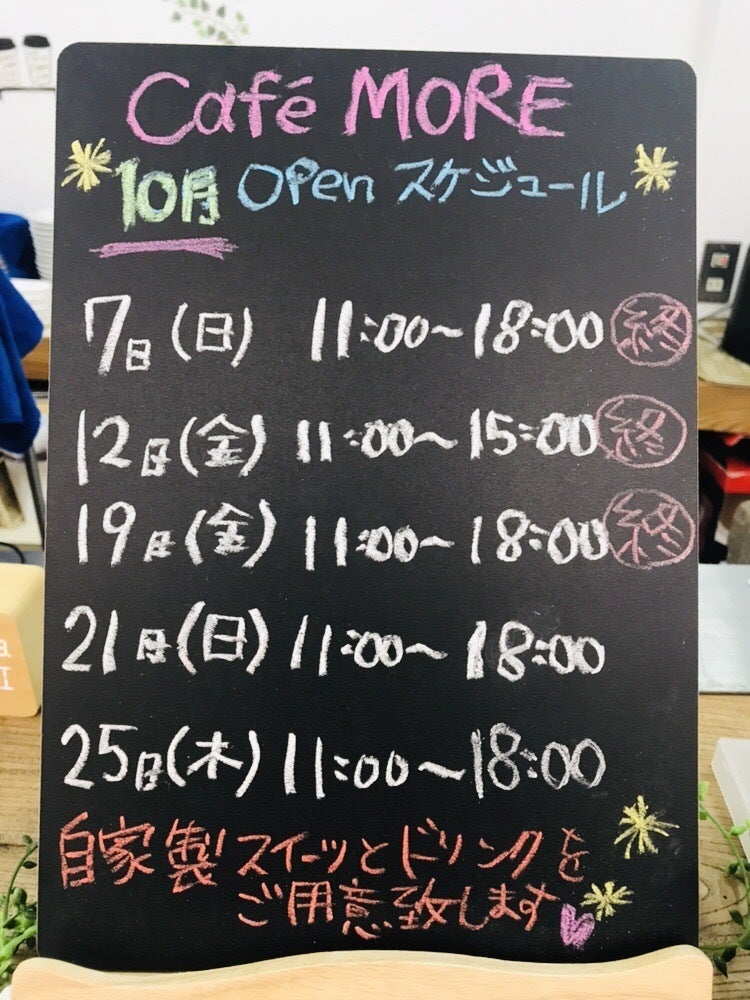 Café MORE
10月 Open スケジュール
7日(日) 11:00~18:00 終
12日(金) 11:00~15:00 終
19日(金) 11:00~18:00 終
21日(日) 11:00~18:00
25日(木) 11:00~18:00
自家製スイーツとドリンクを
ご用意致します